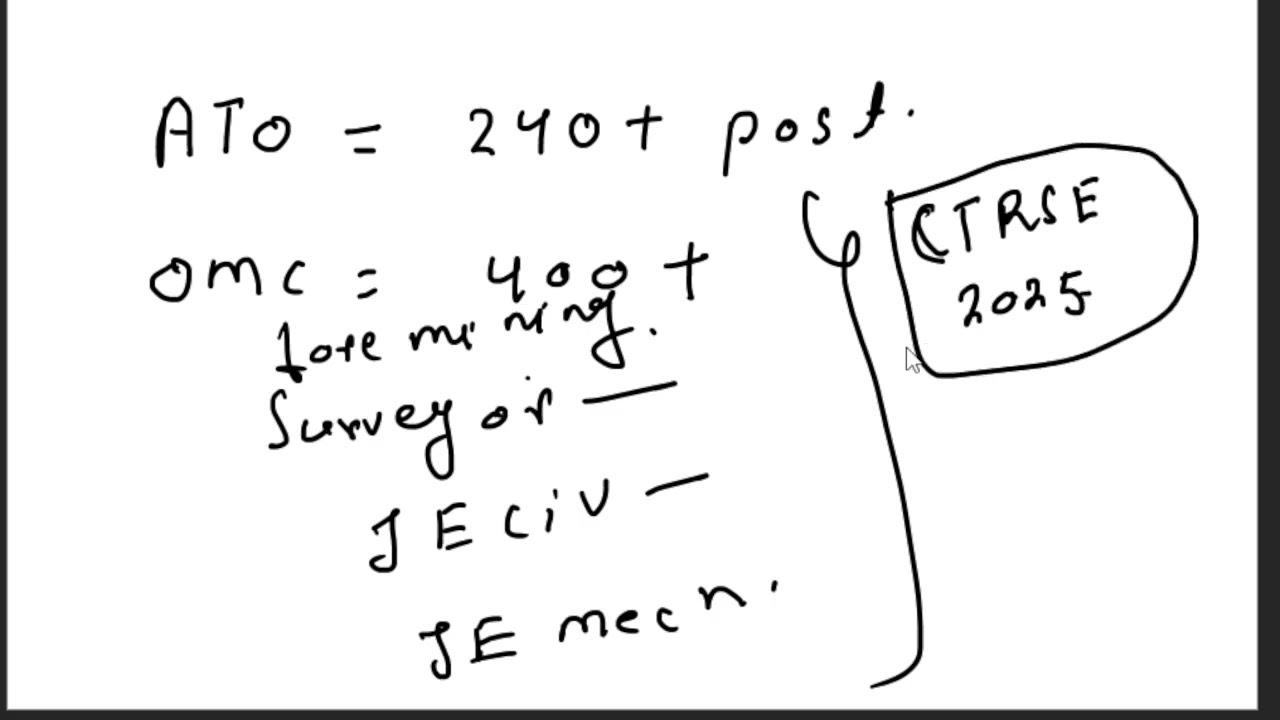 ATO = 240+ post.
CTRSE
2025
OMC = 400+
fore mining.
Surveyor —
JE civ —
JE mech.